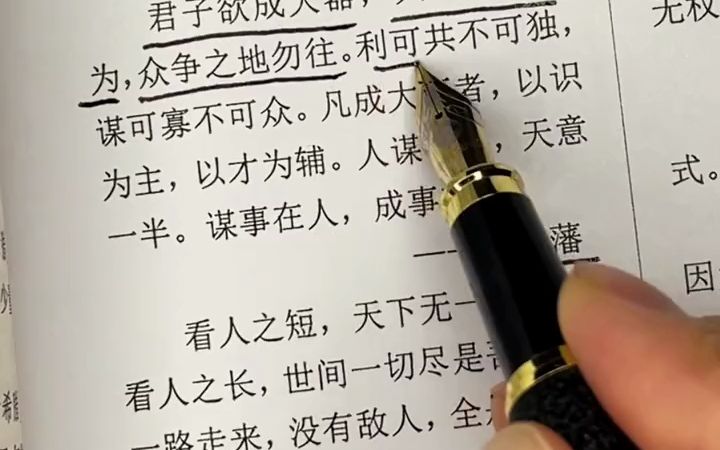 君子欲成大器，
为，众争之地勿往。利可共不可独，
谋可寡不可众。凡成大 者，以识
为主，以才为辅。人谋 ，天意
一半。谋事在人，成事
藩
看人之短，天下无一
看人之长，世间一切尽是
一路走来，没有敌人，全
无权
式。
因